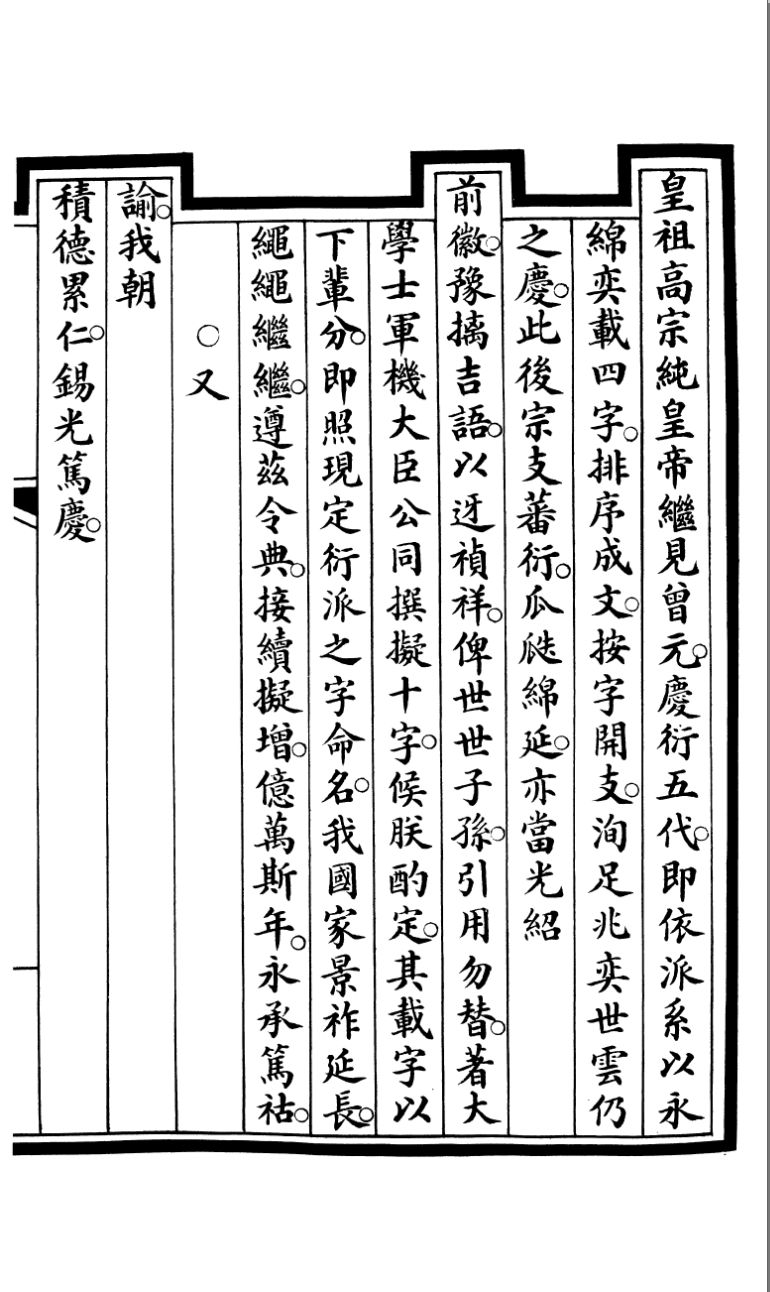 皇祖高宗純皇帝繼見曾元。慶衍五代。即依派系以永
綿奕載四字。排序成文。按字開支。洵足兆奕世雲仍
之慶。此後宗支蕃衍。瓜瓞綿延。亦當光紹
前徽。豫摛吉語。以迓禎祥。俾世世子孫。引用勿替。著大
學士軍機大臣公同撰擬十字。候朕酌定。其載字以
下輩分。即照現定衍派之字命名。我國家景祚延長。
繩繩繼繼。遵茲令典。接續擬增。億萬斯年。永承篤祜。
○又
諭。我朝
積德累仁。錫光篤慶。